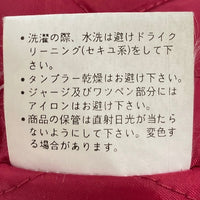 ・洗濯の際、水洗は避けドライク
リーニング(セキユ系)をして下
さい。
・タンブラー乾燥はお避け下さい。
・ジャージ及びワッペン部分には
アイロンはお避け下さい。
・商品の保管は直射日光が当たら
ない所にして下さい。変色す
る場合があります。